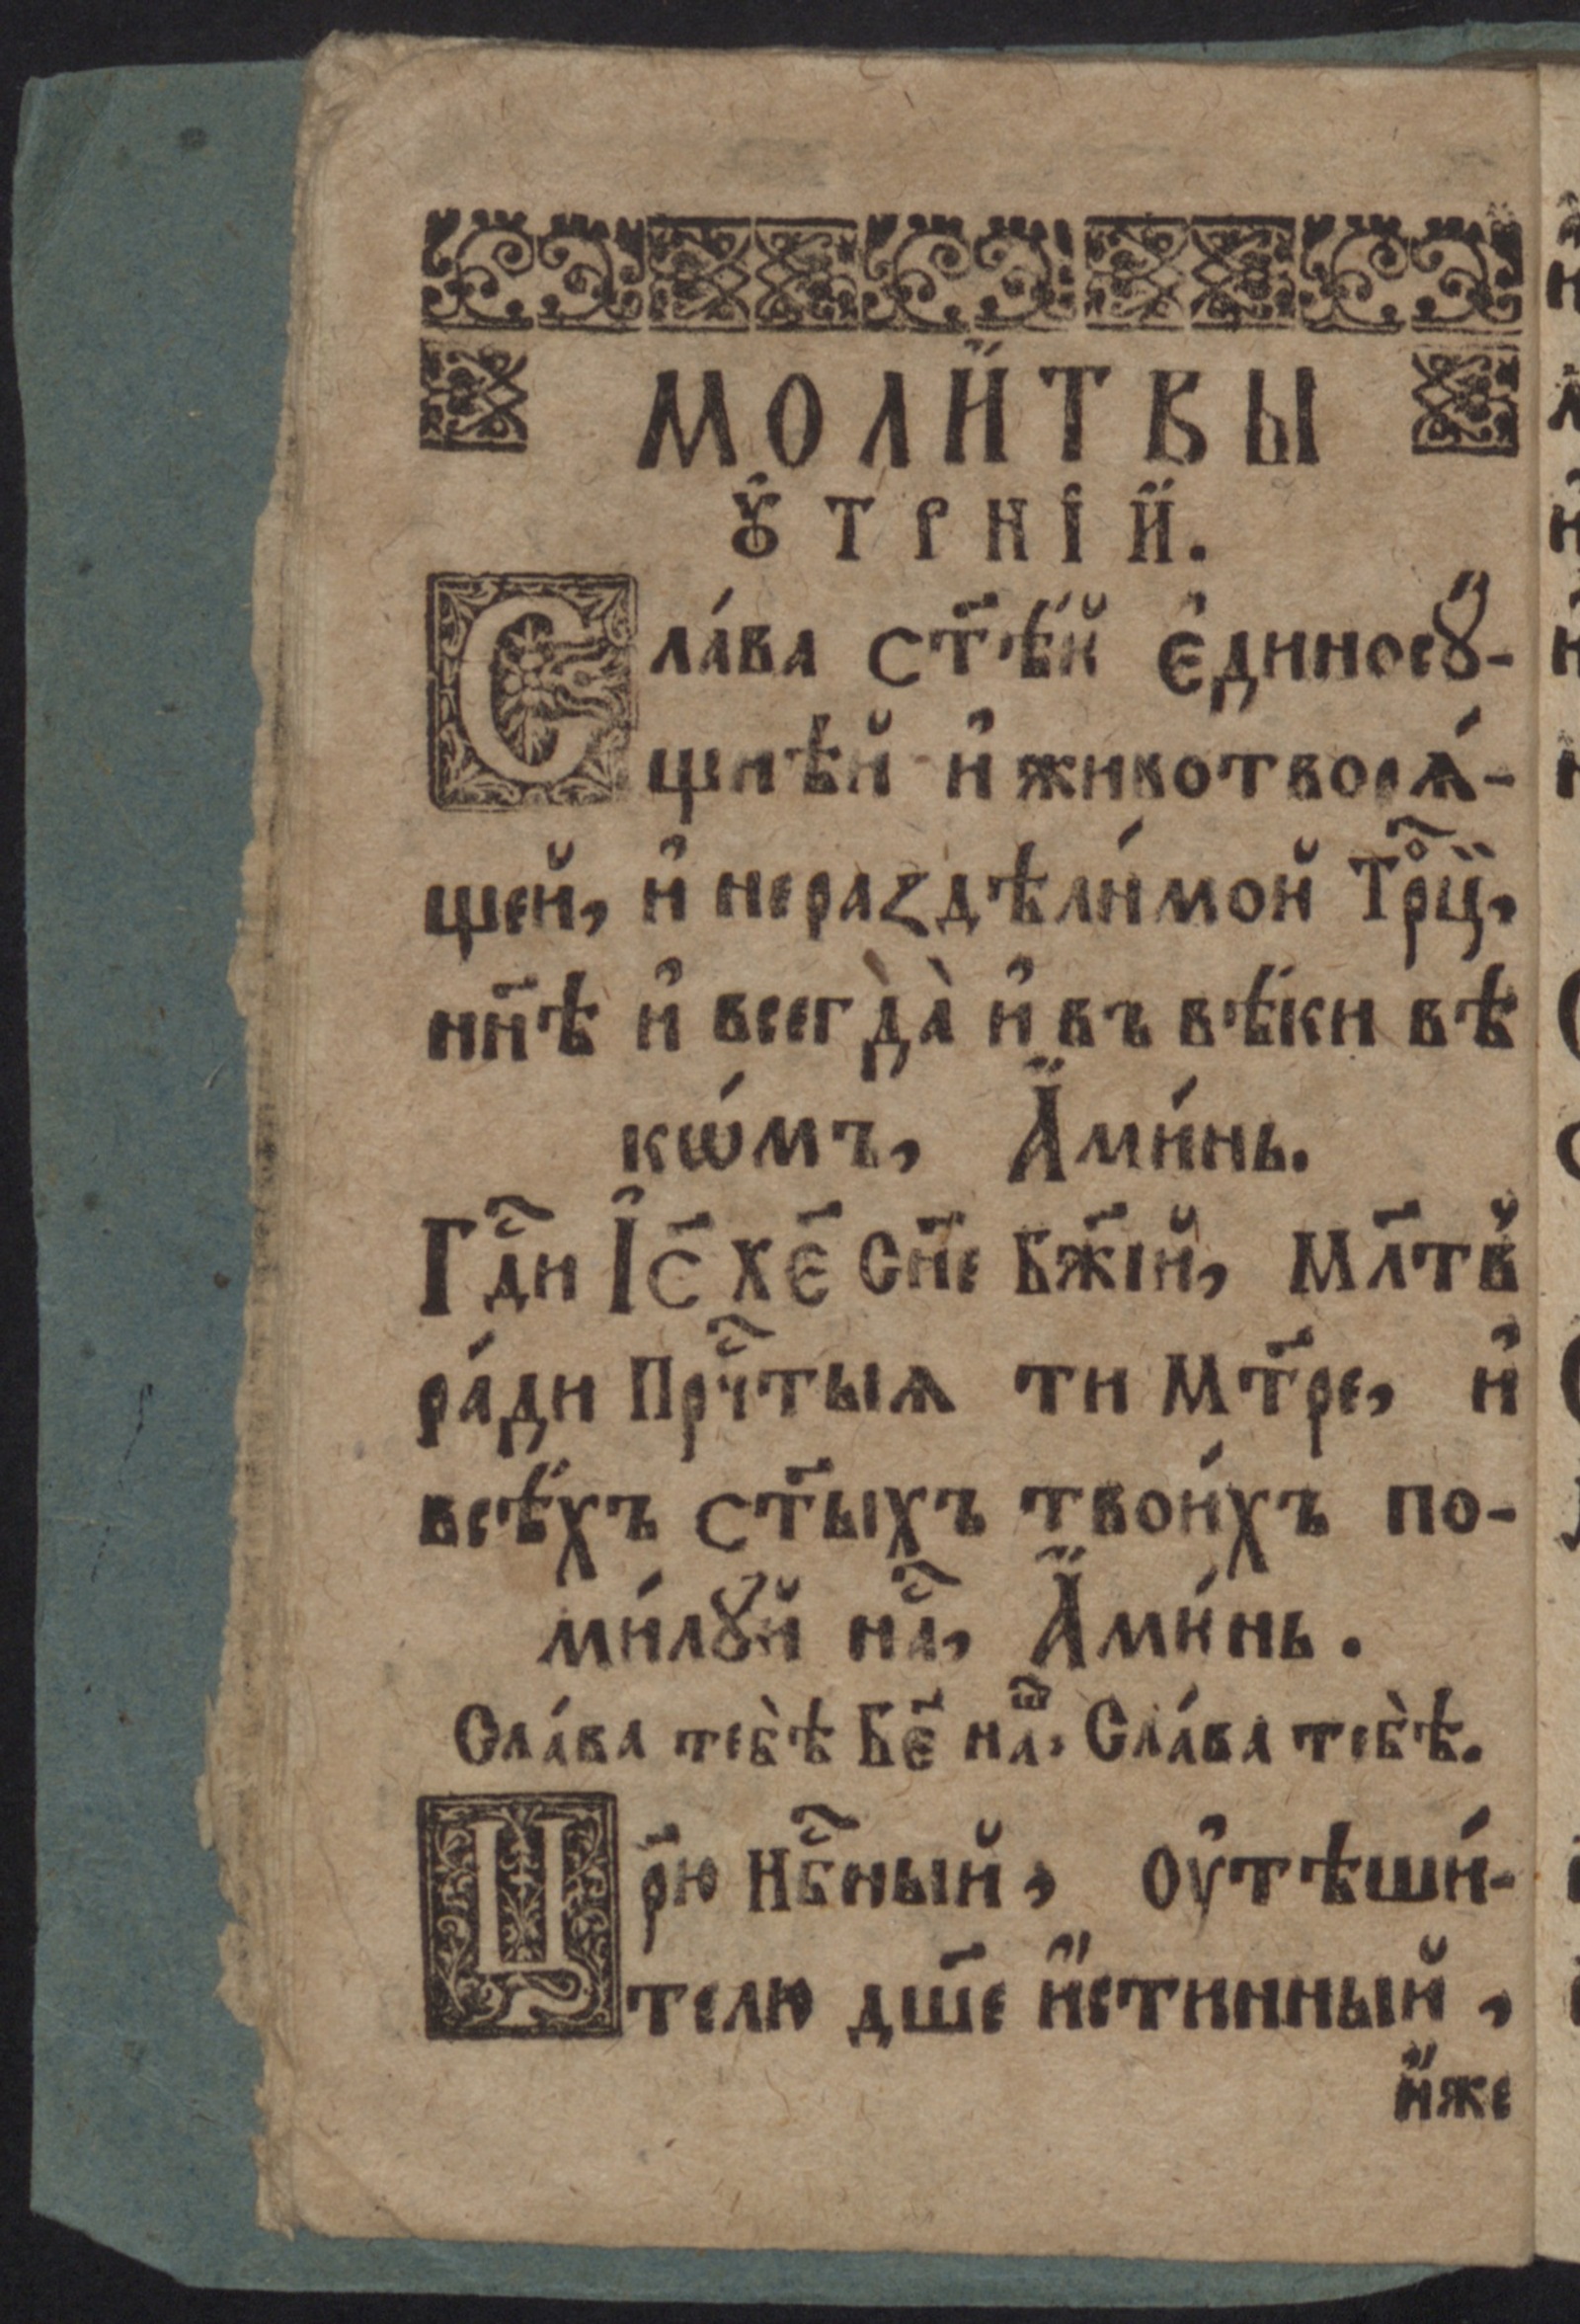 МОЛИ́ТВЫ
Ꙋ҆ТРНІИ.
Сла́ва ст҃ѣ́й є҆диносꙋ́-
щнѣй и҆ животворѧ́-
щей, и҆ нераздѣли́мой Трⷪ҇ц,
нн҃ѣ и҆ всегда̀ и҆ въ вѣ́ки вѣ
кѡ́мъ, А҆ми́нь.
Гдⷭ҇и І҆с҃ Хє҃ Сн҃е Бж҃їй, Мл҃тв
ра́ди Прчⷭ҇тыѧ ти Мт҃ре, и҆
всѣ́хъ ст҃ыхъ твои́хъ по-
ми́лꙋй наⷭ҇, А҆ми́нь.
Сла́ва тебѣ̀ Бє҃ наⷲ҇, Сла́ва тебѣ̀.
Цр҃ю Нбⷭ҇ный, Оу҆тѣши́-
телю дш҃е и҆́стинный,
и҆́же